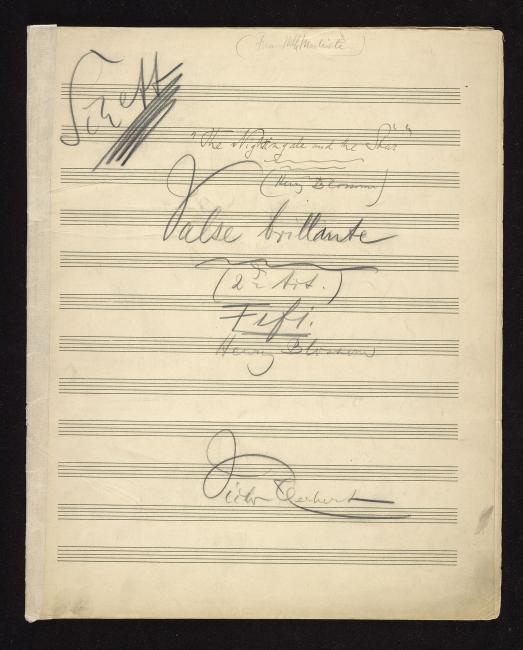 (From Mlle Modiste)
"The Nightingale and the Star"
(Henry Blossom)
Valse brillante
(2<sup>nd</sup> Act.)
Fifi.
Henry Blossom
Victor Herbert